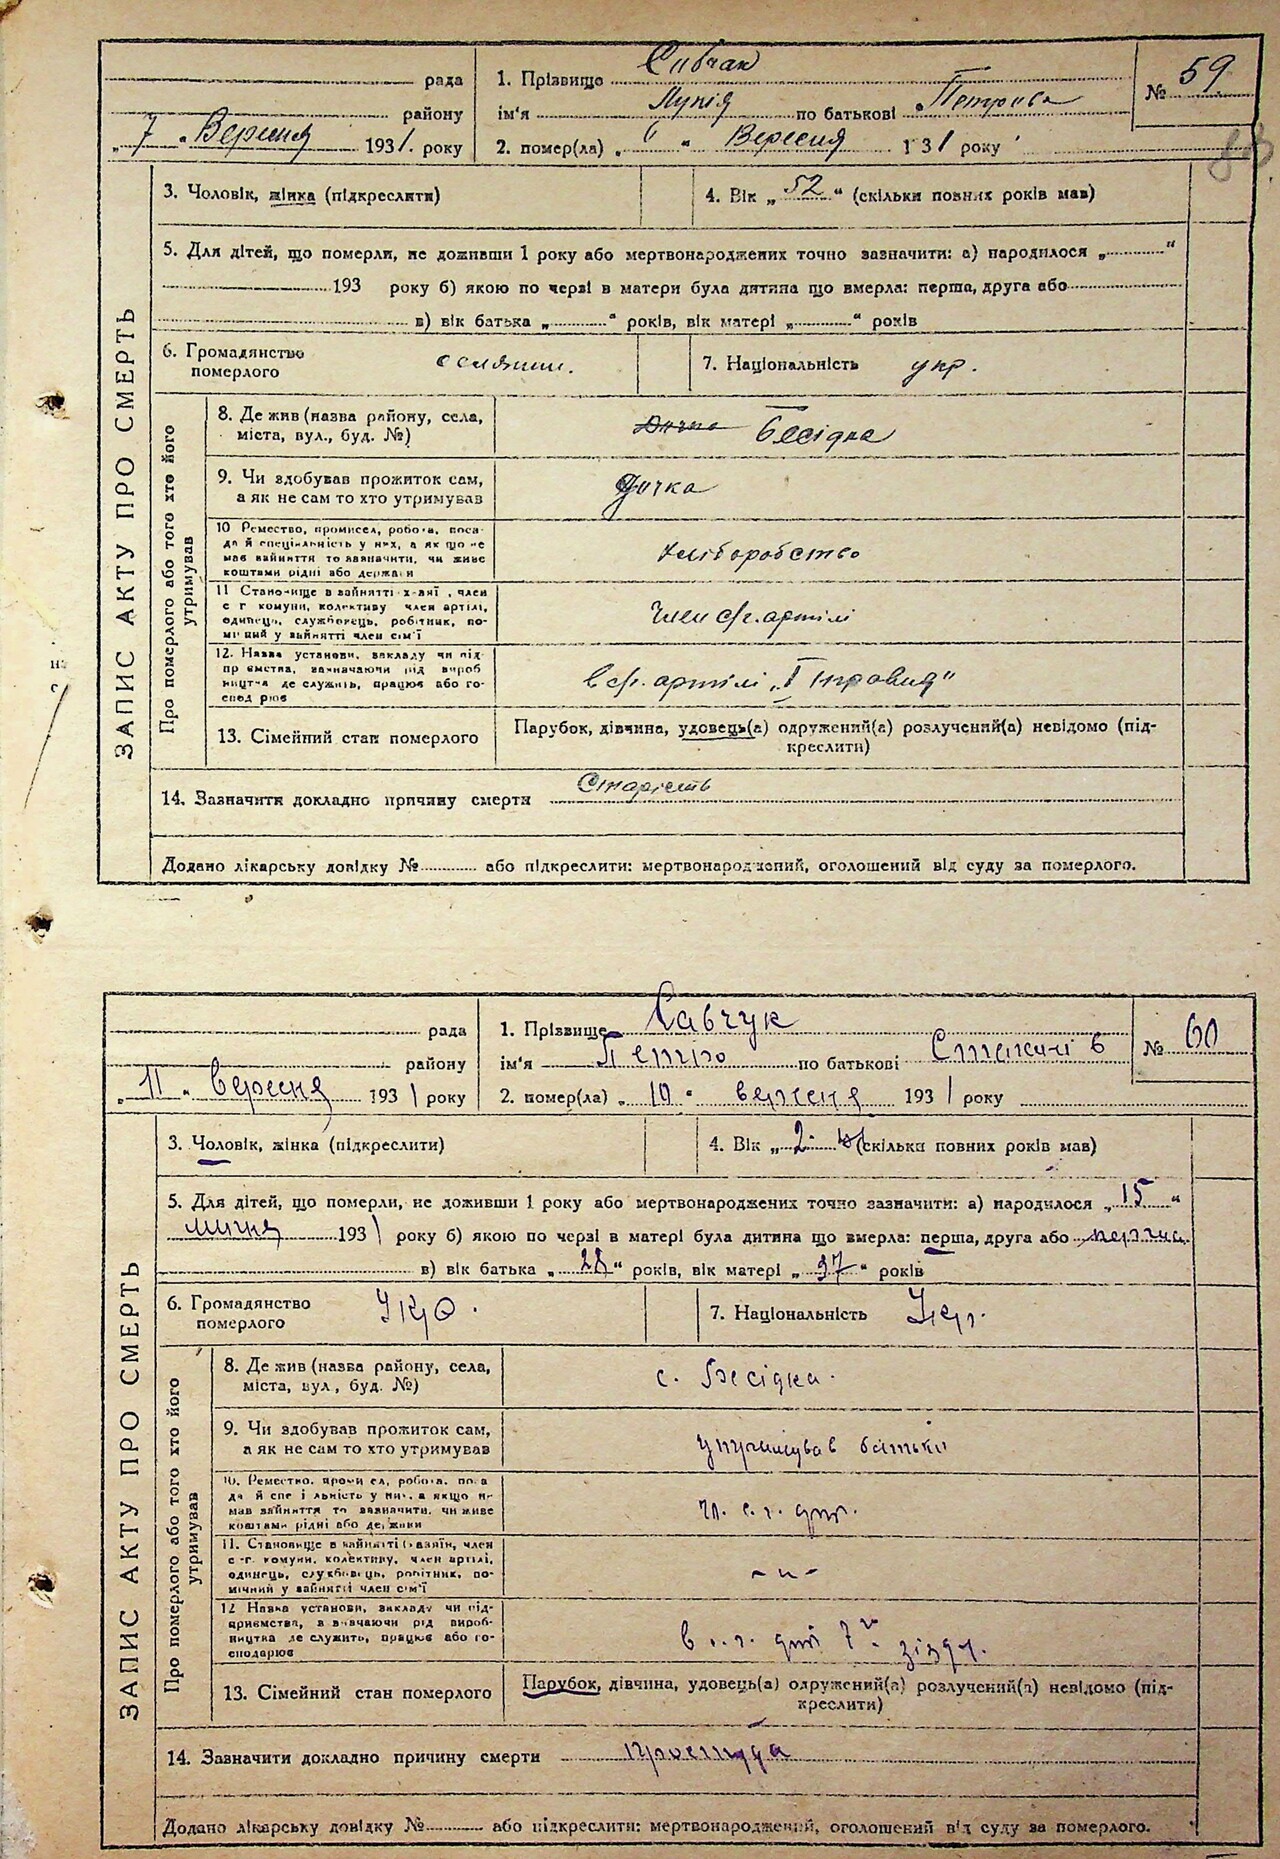 рада
району
„ 7 „ Вересня 1931. року
1. Прізвище Сивчак
ім'я по батькові Петрівна
2. помер(ла) „ 6 „ Вересня 1 31 року
№ 59
83
ЗАПИС АКТУ ПРО СМЕРТЬ
3. Чоловік, жінка (підкреслити)
4. Вік „ 52 " (скільки повних років мав)
5. Для дітей, що померли, не доживши 1 року або мертвонароджених точно зазначити: а) народилося „ "
193 року б) якою по черзі в матери була дитина що вмерла: перша, друга або
в) вік батька „ " років, вік матері „ " років
6. Громадянство
померлого
7. Національність укр.
Про померлого або того хто його
утримував
8. Де жив (назва району, села,
міста, вул., буд. №)
Бесідка
9. Чи здобував прожиток сам,
а як не сам то хто утримував
Дочка
10 Ремество, промисел, робота, поса-
да й спеціяльність у них, а як що не
мав зайняття то зазначити, чи живе
коштами рідні або держави
хліборобство
11 Становище в зайнятті х-зяї , член
с г комуни, колективу член артілі,
одинець, службовець, робітник, по-
мічний у зайнятті член сім'ї
член с/г. артілі
12. Назва установи, закладу чи під-
пр ємства, зазначаючи рід вироб
ництва де служить, працює або го-
спод рює
в с/г. артілі
13. Сімейний стан померлого
Парубок, дівчина, удовець(а) одружений(а) розлучений(а) невідомо (під-
креслити)
14. Зазначити докладно причину смерти Старість
Додано лікарську довідку № або підкреслити: мертвонароджений, оголошений від суду за померлого.
рада
району
„ 11 „ вересня 1931 року
1. Прізвище Савчук
ім'я Петро по батькові
2. помер(ла) „ 10 " вересня 1931 року
№ 60
ЗАПИС АКТУ ПРО СМЕРТЬ
3. Чоловік, жінка (підкреслити)
4. Вік „ 2 (скільки повних років мав)
5. Для дітей, що померли, не доживши 1 року або мертвонароджених точно зазначити: а) народилося „ 15 "
липня 1931 року б) якою по черзі в матері була дитина що вмерла: перша, друга або перша
в) вік батька „ 28 " років, вік матері „ 27 " років
6. Громадянство
померлого
Укр.
7. Національність Укр.
Про померлого або того хто його
утримував
8. Де жив (назва району, села,
міста, вул., буд. №)
с. Бесідка.
9. Чи здобував прожиток сам,
а як не сам то хто утримував
утримував батько
10. Ремество, проми ел, робота, поса
да й спе і льність у них, а якщо не
мав зайняття то зазначити, чи живе
коштами рідні або держави
чл. с. г. арт.
11. Становище в зайнятті хазяїн, член
с -г. комуни, колективу, член артілі,
одинець, службовець, робітник, по-
мічний у зайнятті член сім'ї
- и -
12 Назва установи, закладу чи під-
приємства, зазначаючи рід вироб-
ництва де служить, працює або го-
сподарює
13. Сімейний стан померлого
Парубок, дівчина, удовець(а) одружений(а) розлучений(а) невідомо (під-
креслити)
14. Зазначити докладно причину смерти простуда
Додано лікарську довідку № або підкреслити: мертвонароджений, оголошений від суду за померлого.